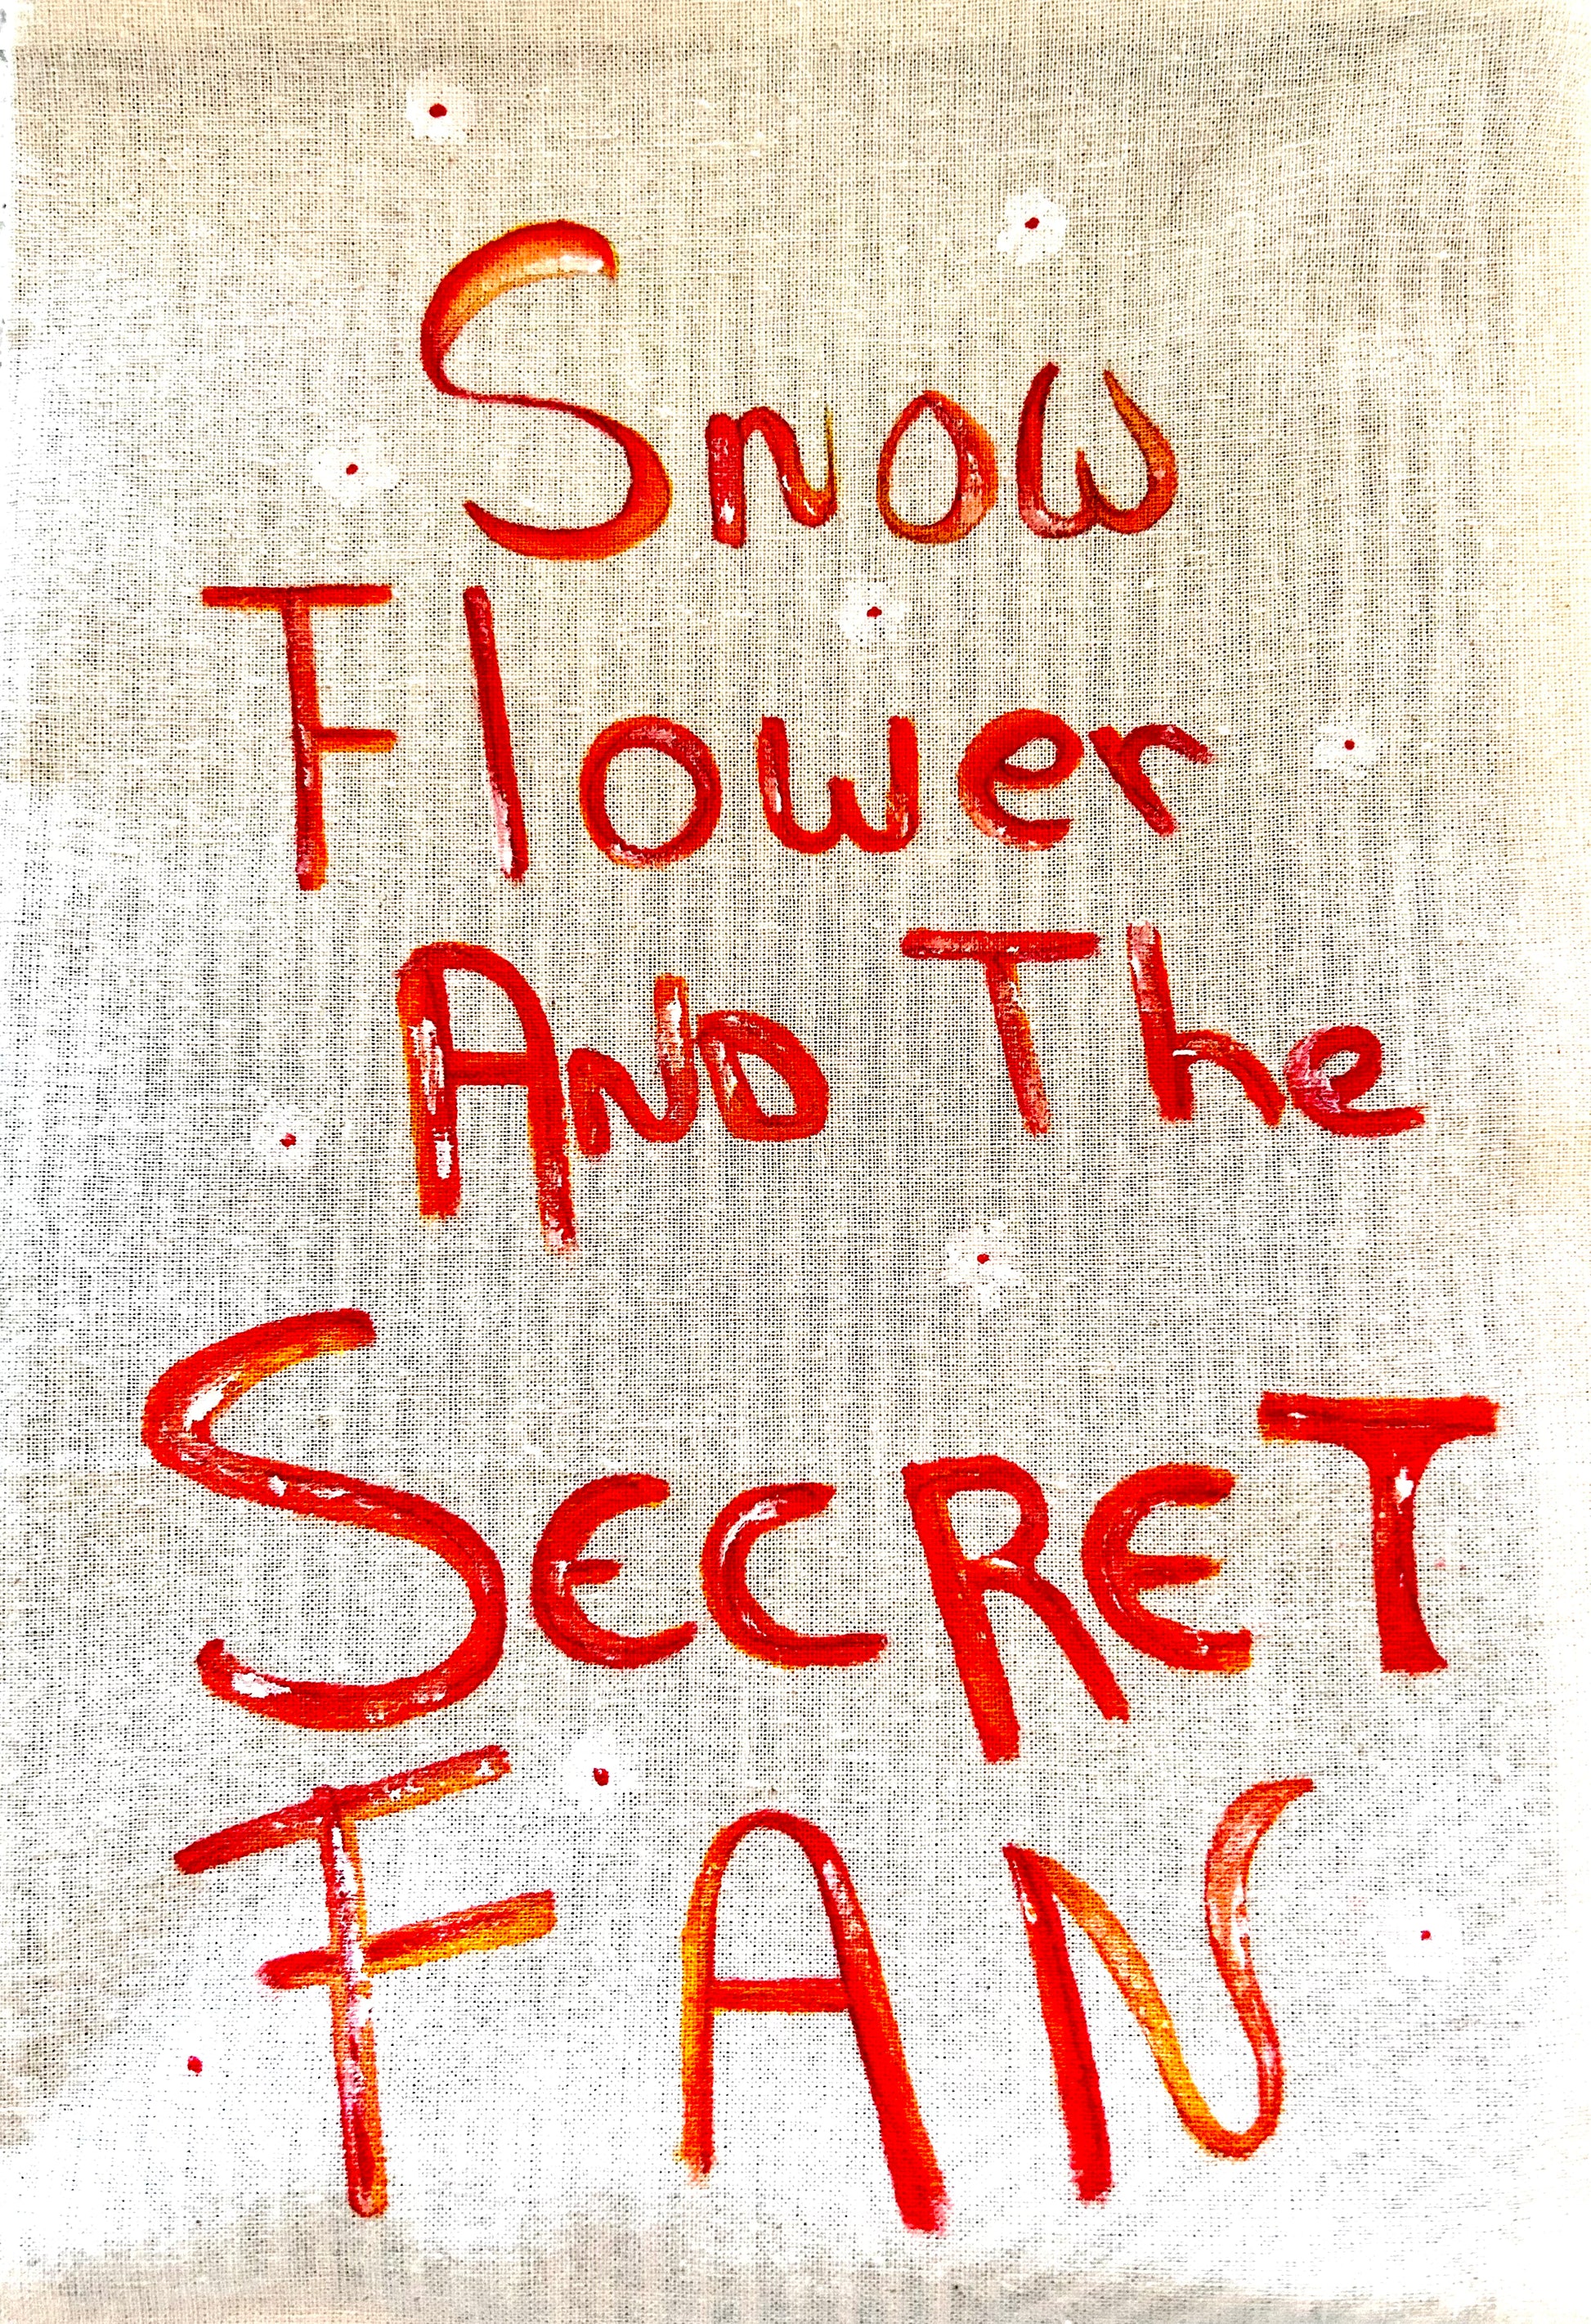 Snow
Flower
AND The
SECRET
FAN